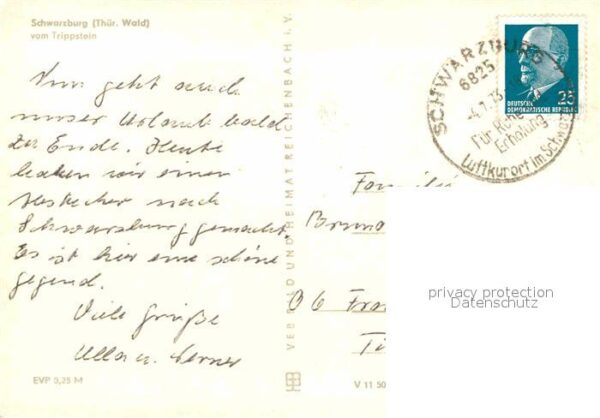 Schwarzburg (Thür. Wald)
vom Trippstein
Nun geht auch
unser Urlaub bald
zu Ende. Heute
haben wir einen
Abstecher nach
Schwarzburg gemacht.
Es ist hier eine schöne
Gegend.
Viele Grüße
Ulla u. Werner
EVP 0,25 M
VERLAG BILD UND HEIMAT REICHENBACH I. V.
V 11 50
SCHWARZBURG
6825
-4.7.73
Für Ruhe
Erholung
Luftkurort im Schwarz
25
DEUTSCHE
DEMOKRATISCHE REPUBLIK
Familie
Bruno
06 Fra
privacy protection
Datenschutz